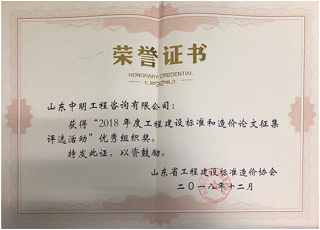 荣誉证书
HONORARY CREDENTIAL
山东中明工程咨询有限公司：
获得“2018年度工程建设标准和造价论文征集
评选活动”优秀组织奖。
特发此证，以资鼓励。
山东省工程建设标准造价协会
二〇一八年十二月